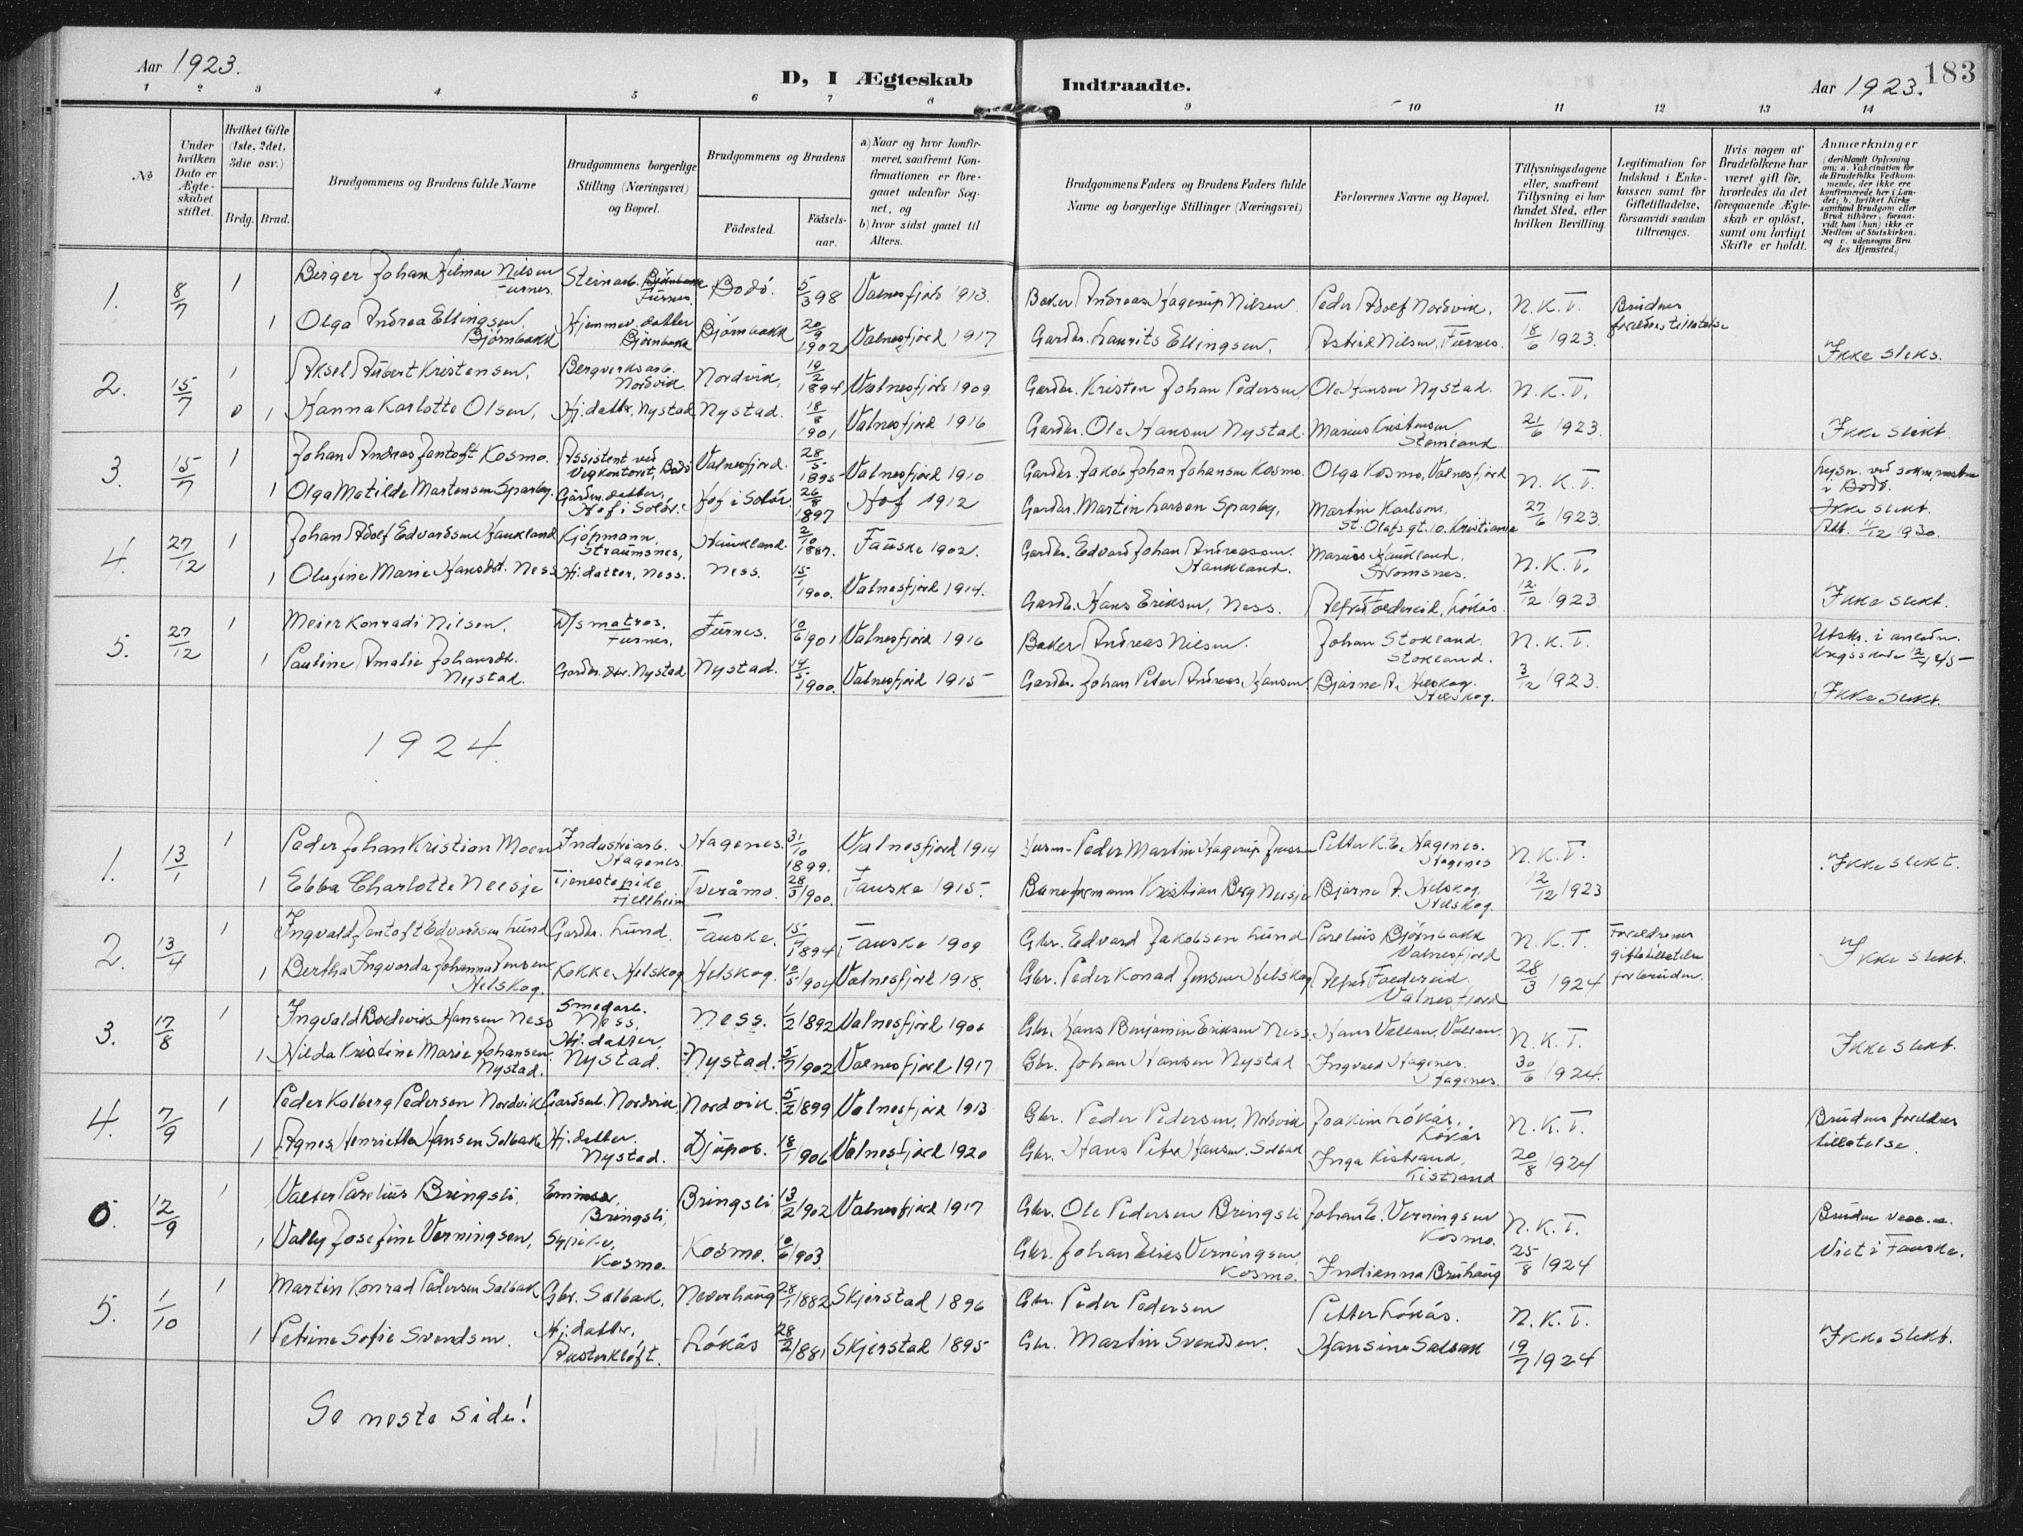 Aar 1923.
D, I Ægteskab Indtraadte.
Aar 1923.
183
1 2 3 4 5 6 7 8 9 10 11 12 13 14
No
Under hvilken Dato er Ægteskabet stiftet.
Hvilket Gifte (1ste, 2det, 3die osv.)
Brdg. Brud.
Brudgommens og Brudens fulde Navne
Brudgommens borgerlige Stilling (Næringsvei) og Bopæl.
Brudgommens og Brudens
Födested.
Födselsaar.
a) Naar og hvor konfirmeret, saafremt Konfirmationen er foregaaet udenfor Sognet, og
b) hvor sidst gaaet til Alters.
Brudgommens Faders og Brudens Faders fulde Navne og borgerlige Stillinger (Næringsvei)
Forlovernes Navne og Bopæl.
Tillysningsdagene eller, saafremt Tillysning ei har fundet Sted, efter hvilken Bevilling.
Legitimation for Indskud i Enkekassen samt for Giftetilladelse, forsaavidt saadan tiltrænges.
Hvis nogen af Brudefolkene har været gift før, hvorledes da det foregaaende Ægteskab er opløst, samt om lovligt Skifte er holdt.
Anmærkninger
(deriblandt Oplysning om: a. Vakcination for de Brudefolks Vedkommende, der ikke ere konfirmerede her i Landet; b. hvilket Kirkesamfund Brudgom eller Brud tilhører, forsaavidt han (hun) ikke er Medlem af Statskirken, og c. udensogns Brudes Hjemsted.)
1. 8/7 1 Berger Johan Hilmar Nilsen Furnes. Steinarb. Furnes. Bodö. 5/3 98 Valnesfjord 1913. Baker Andreas Hagerup Nilsen. Peder Adolf Nordvik. N.K.T. Brudens foreldres tillatelse
1 Olga Andrea Ellingsen Björnbakk Hjemmev. datter Björnbakk Björnbakk 20/9 1902 Valnesfjord 1917 Gardbr. Laurits Ellingsen. Astrid Nilsen, Furnes. 18/6 1923. Ikke slekt.
2. 15/7 1 Aksel Albert Kristensen, Bergverksarb. Nordvik Nordvik, 19/2 1894 Valnesfjord 1909. Gardbr. Kristen Johan Pedersen Ole Hansen Nystad. N.K.T.
0 1 Hanna Karlotte Olsen, Hj. datter, Nystad Nystad. 18/8 1901 Valnesfjord 1916 Gardbr. Ole Hansen Nystad. Marius Kristensen Stemland. 21/6 1923. Ikke slekt.
3. 15/7 1 Johan Andreas Jentoft Kosmo. Assistent ved Vegkontoret, Bodö Valnesfjord. 28/5 1895 Valnesfjord 1910 Gardbr. Jakob Johan Johansen Kosmo. Olga Kosmo, Valnesfjord N.K.T. Lysn. ved soknepresten i Bodö.
1 Olga Matilde Martensen Sparby. Gårdm. datter, Hof i Solör. Hof i Solör. 26/8 1897 Hof 1912 Gardbr. Martin Larsen Sparby, Martin Karlsen, St. Olafs gt. 10. Kristiania 27/6 1923. Ikke slekt. Att. 4/12 1930.
4. 27/12 1 Johan Adolf Edvardsen Haukland Kjöpmann, Straumsnes, Haukland. 2/10 1887. Fauske 1902. Gardbr. Edvard Johan Andreassen Haukland. Marius Haukland, Strömsnes. N.K.T.
1 Olufine Marie Hansdt. Ness Hj. datter, Ness. Ness. 15/1 1900. Valnesfjord 1914. Gardb. Hans Eriksen, Ness. Alfred Foedereid, Lökås. 12/12 1923 Ikke slekt.
5. 27/12 1 Meier Konradi Nilsen. D/s matros. Furnes. Furnes. 10/6 1901 Valnesfjord 1916 Baker Andreas Nilsen. Johan Stokland, Stokland. N.K.T. Utskr. i
1 Pauline Amalie Johansdt. Nystad. Gardbr. dtr. Nystad Nystad. 14/5 1900. Valnesfjord 1915 Gardbr. Johan Peter Andreas Hansen Bjarne A. Helskog. Helskog. 3/12 1923. Ikke slekt.
1924
1. 13/1 1 Peder Johan Kristian Moen Industriarb. Hagenes. Hagenes. 31/10 1899. Valnesfjord 1914 Husm. Peder Martin Hagerup Jensen Petter K. E. Hagenes. Hagenes N.K.T. Ikke slekt.
1 Ebba Charlotte Neisje Tjenestepike Fjellheim Tveråmo. 28/3 1900. Fauske 1915. Baneformann Kristian Berg Neisje Bjarne A. Helskog. Helskog. 12/12 1923
2. 13/4 1 Ingvald Jentoft Edvardsen Lund Gardbr. Lund. Fauske. 15/7 1894 Fauske 1909 Gbr. Edvard Jakobsen Lund Parelius Björnbakk Valnesfjord N.K.T. Foreldrenes giftetillatelse for bruden. Ikke slekt.
1 Bertha Ingvarda Johanna Jensen Helskog. Kokke Helskog Helskog. 10/5 1904 Valnesfjord 1918. Gbr. Peder Konrad Jensen Helskog Alfred Foedereid. Valnesfjord 28/3 1924
3. 17/8 1 Ingvald Bodevik Hansen Ness Smedarb. Ness. Ness. 1/2 1892 Valnesfjord 1906 Gbr. Hans Benjamin Eriksen Ness. Hans Vallan, Vallan. N.K.T. Ikke slekt.
1 Hilda Kristine Marie Johansen Nystad. Hj. datter, Nystad. Nystad. 5/7 1902 Valnesfjord 1917 Gbr. Johan Hansen Nystad Ingvald Hagenes. Hagenes. 30/6 1924.
4. 7/9 1 Peder Kolberg Pedersen Nordvik Gardsarb. Nordvik Nordvik. 5/2 1899 Valnesfjord 1913 Gbr. Peder Pedersen, Nordvik Joakim Lökås, Lökås N.K.T. Brudens foreldres tillatelse.
1 Agnes Henriette Hansen Salbakk Hj. datter. Nystad. Djupos. 18/1 1906 Valnesfjord 1920 Gbr. Hans Peter Hansen. Solbak Inga Kistrand, Kistrand 20/8 1924
0. 12/9 1 Valter Parelius Bringsli, Bringsli, Bringsli 13/2 1902 Valnesfjord 1917 Gbr. Ole Pedersen Bringsli Johan E. Verningsen Kosmo. N.K.T. Viet i Fauske.
1 Vally Josefine Verningsen, Sypike, Kosmo. Kosmo. 10/6 1903. Gbr. Johan Elies Verningsen Kosmo. Indianna Bruhaug 25/8 1924
5. 1/10 1 Martin Konrad Pedersen Salbak Gbr. Salbak, Neverhaug 28/1 1882 Skjerstad 1896 Gbr. Peder Pedersen Petter Lökås. N.K.T. Ikke slekt.
1 Petrine Sofie Svendsen. Hj. datter, Austerkløft. Lökås 28/2 1881 Skjerstad 1895 Gbr. Martin Svendsen. Hansine Salbak 19/7 1924
Se neste side!